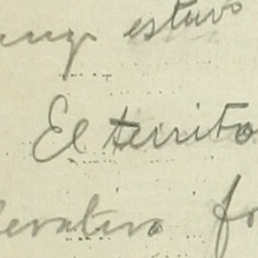 estuvo
El territo
erativo fo